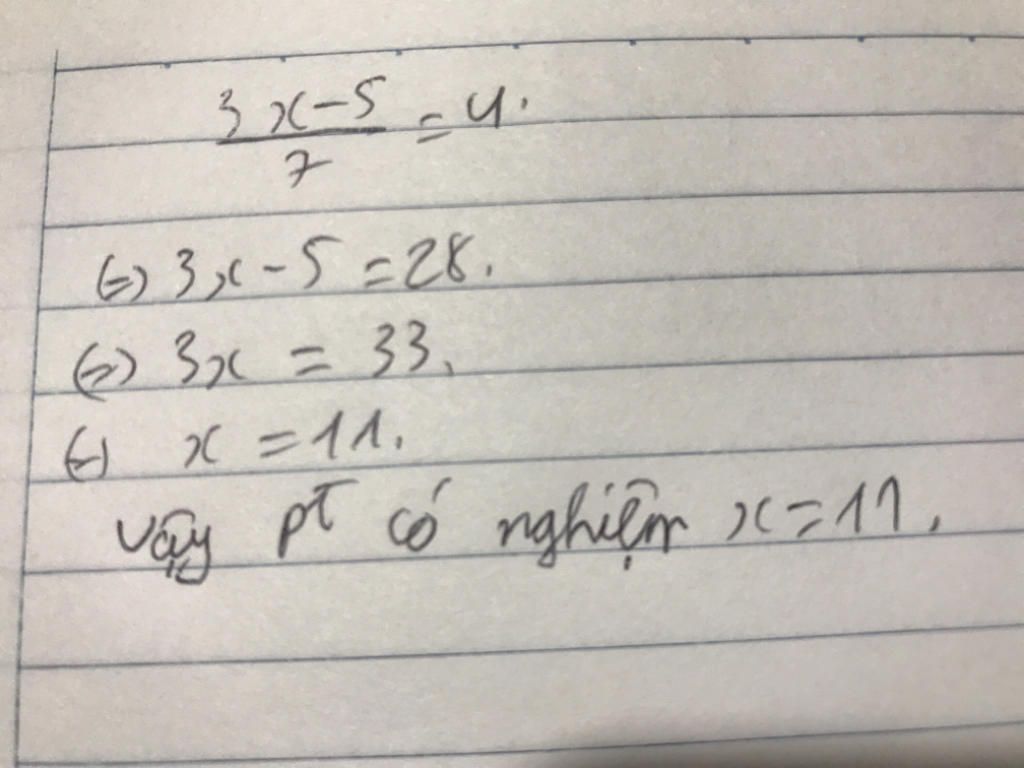 3x-5
/7 = 4.
(=) 3x - 5 = 28.
(=) 3x = 33.
(=) x = 11.
Vậy pt có nghiệm x = 11.